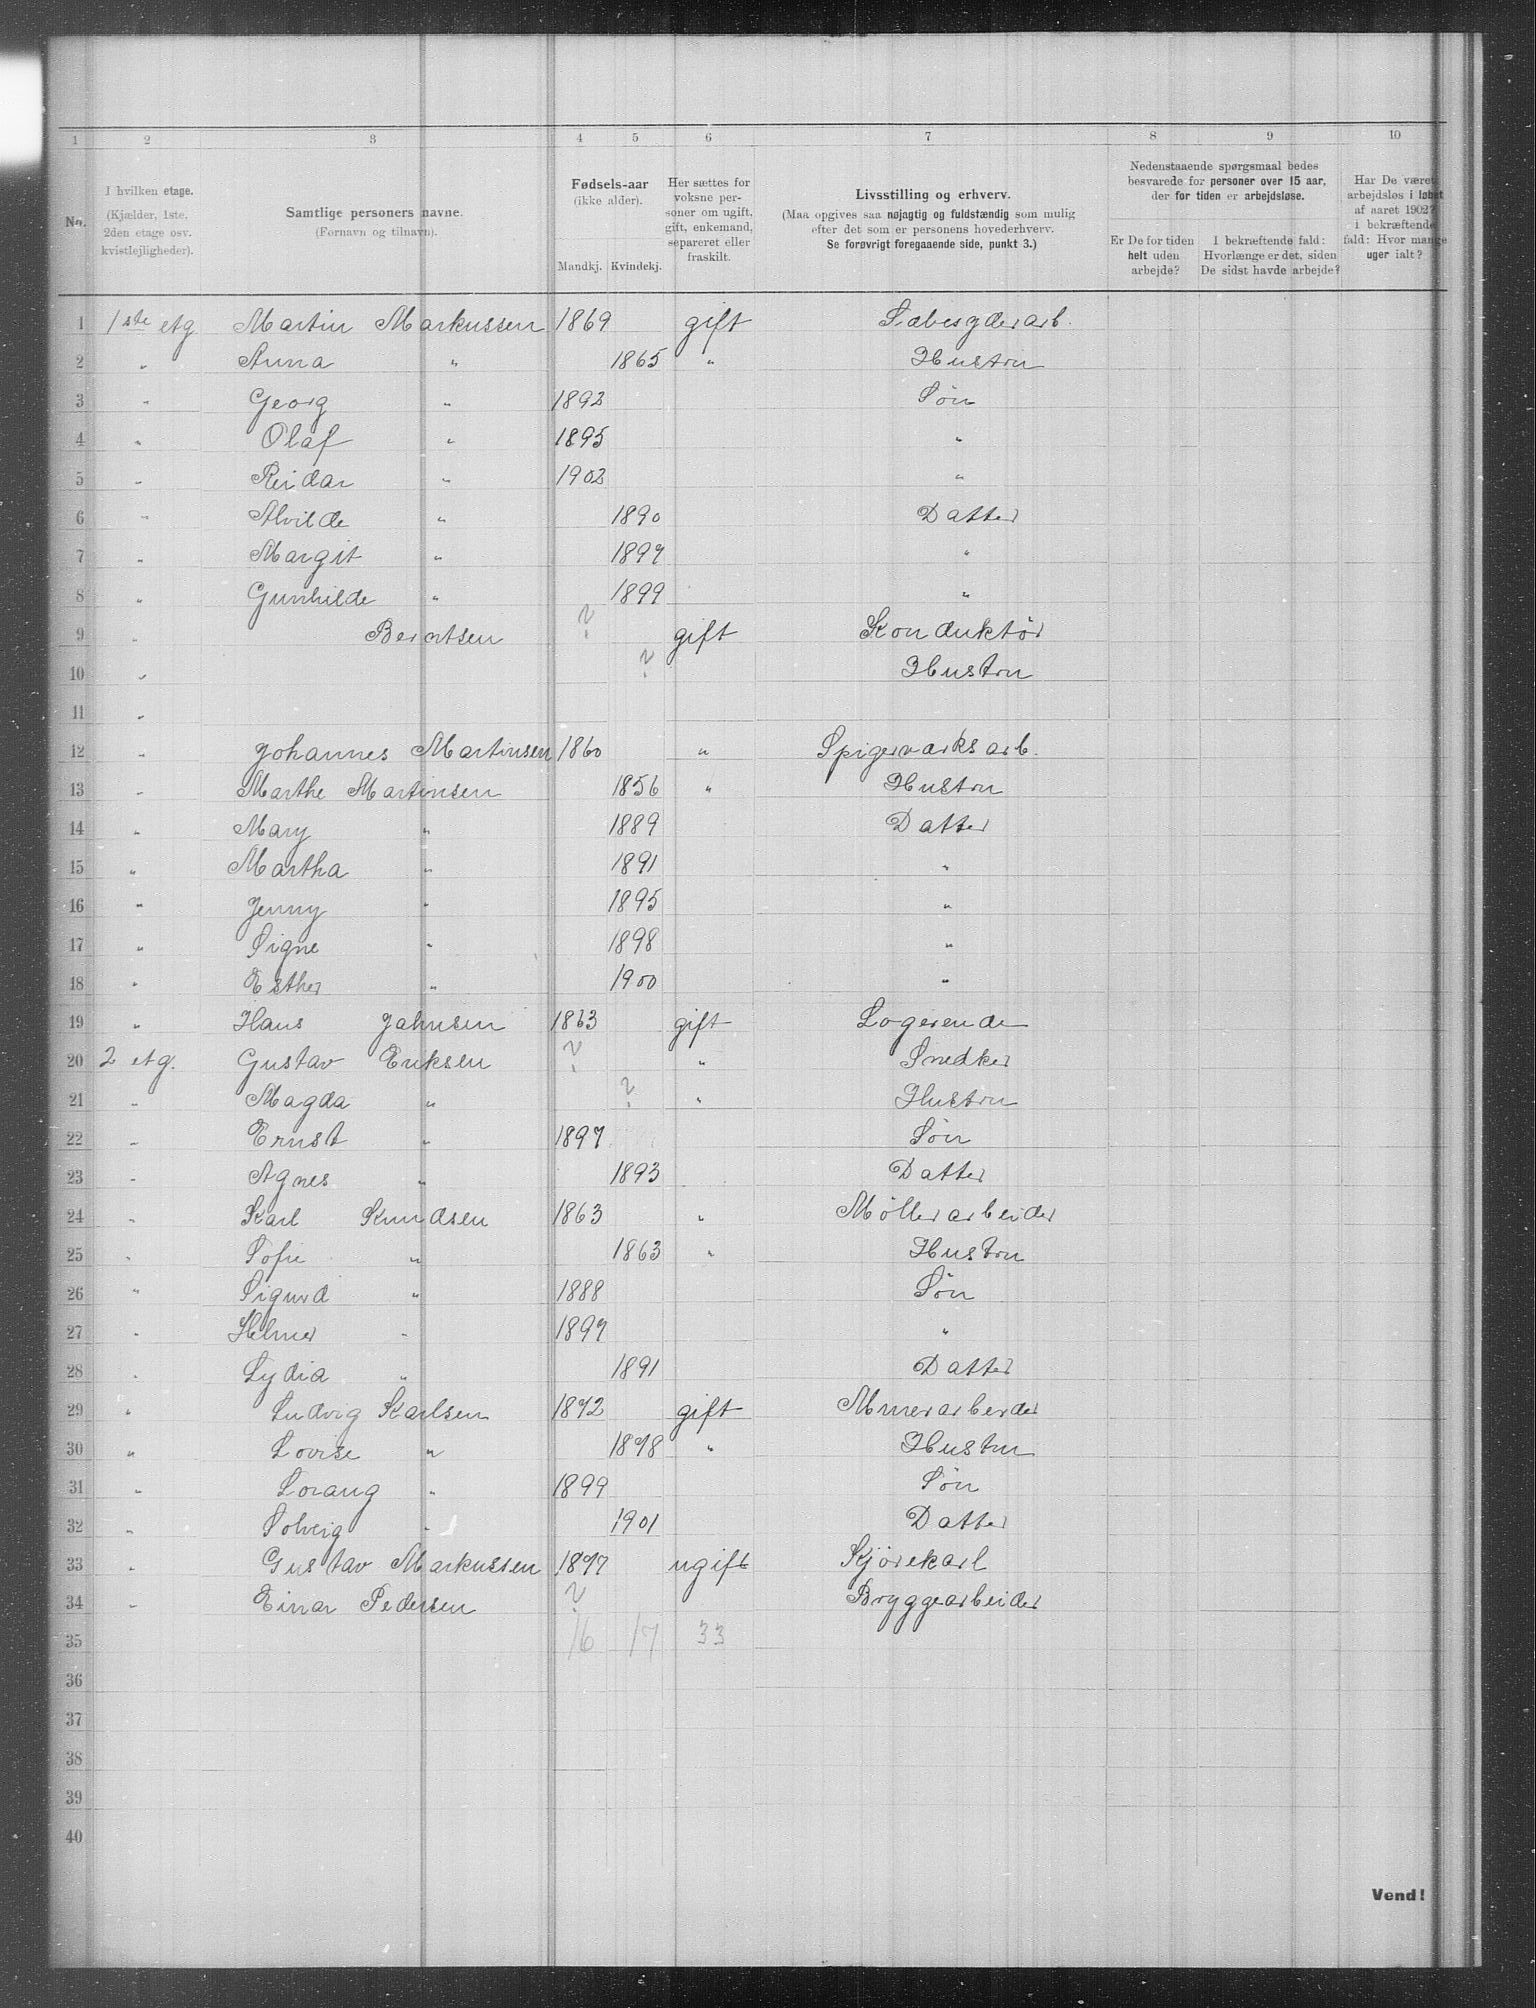 1 2 3 4 5 6 7 8 9 10
No.
I hvilken etage.
(Kjælder, 1ste, 2den etage osv. kvistlejligheder).
Samtlige personers navne.
(Fornavn og tilnavn).
Fødsels-aar
(ikke alder).
Mandkj. Kvindekj.
Her sættes for voksne personer om ugift, gift, enkemand, separeret eller fraskilt.
Livsstilling og erhverv.
(Maa opgives saa nøjagtig og fuldstændig som mulig efter det som er personens hovederhverv.
Se forøvrigt foregaaende side, punkt 3.)
Nedenstaaende spørgsmaal bedes besvarede for personer over 15 aar, der for tiden er arbejdsløse.
Er De for tiden helt uden arbejde?
I bekræftende fald: Hvorlænge er det, siden De sidst havde arbejde?
Har De været arbejdsløs i løbet af aaret 1902? i bekræftende fald: Hvor mange uger ialt?
1 1ste etg Martin Markussen 1869 gift Sæbesyderarb.
2 " Anna " 1865 " Hustru
3 " Georg " 1892 Søn
4 " Olaf " 1895 "
5 " Reidar " 1902 "
6 " Alvilde " 1890 Datter
7 " Margit " 1897 "
8 " Gunhilde " 1899 "
9 " Berntsen ? gift Konduktør
10 " ? Hustru
11 "
12 " Johannes Martinsen 1860 " Spigerværksarb.
13 " Marthe Martinsen 1856 " Hustru
14 " Mary " 1889 Datter
15 " Martha " 1891 "
16 " Jenny " 1895 "
17 " Signe " 1898 "
18 " Esther " 1900 "
19 " Hans Johnsen 1863 gift Logerende
20 2 etg. Gustav Eriksen ? " Snedker
21 " Magda " ? " Hustru
22 " Ernst " 1897 Søn
23 " Agnes " 1893 Datter
24 " Karl Knudsen 1863 " Møllerarbeider
25 " Sofie " 1863 " Hustru
26 " Sigurd " 1888 Søn
27 " Helmer " 1897 "
28 " Lydia " 1891 Datter
29 " Ludvig Karlsen 1872 gift Murerarbeider
30 " Lovise " 1878 " Hustru
31 " Lorang " 1899 Søn
32 " Solveig " 1901 Datter
33 " Gustav Markussen 1877 ugift Kjørekarl
34 " Einar Pedersen ? Bryggearbeider
35 16 17 33
36
37
38
39
40
Vend!